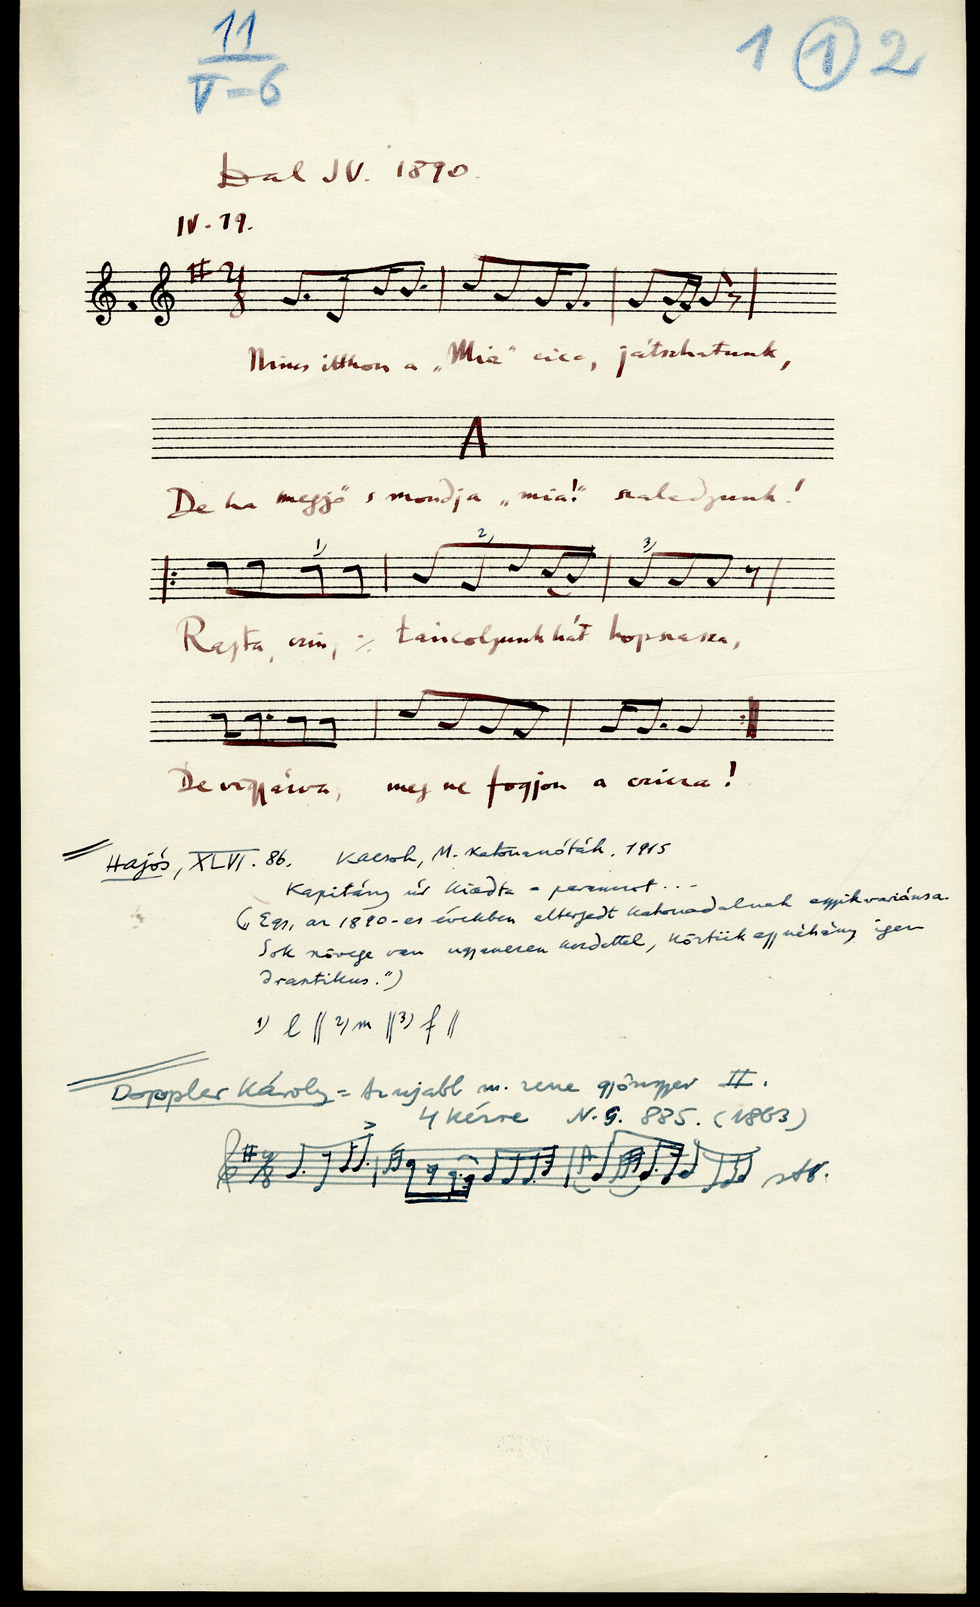 11
V-6
1 1 2
Dal IV. 1890.
IV. 19.
Nincs itthon a „Mia" cica, játszhatunk,
A
De ha megjő s mondja „mia!" szaladjunk!
1) 2) 3)
Rajta, czin, :/: tánczoljunk hát hopszasza,
De vigyázva, meg ne fogjon a czicza!
Hajós, XLVI. 86. Kacsoh, M. Katonanóták. 1915
Kapitány úr kiadta a parancsot...
(„Egy, az 1890-es években elterjedt katonadalnak egyik variánsa.
Sok szövege van ugyanezen kezdettel, köztük egynéhány igen
drastikus.")
1) l || 2) m || 3) f ||
Doppler Károly = Az ujabb m. zene gyöngyei II.
4 kézre N. G. 885. (1863)
stb.